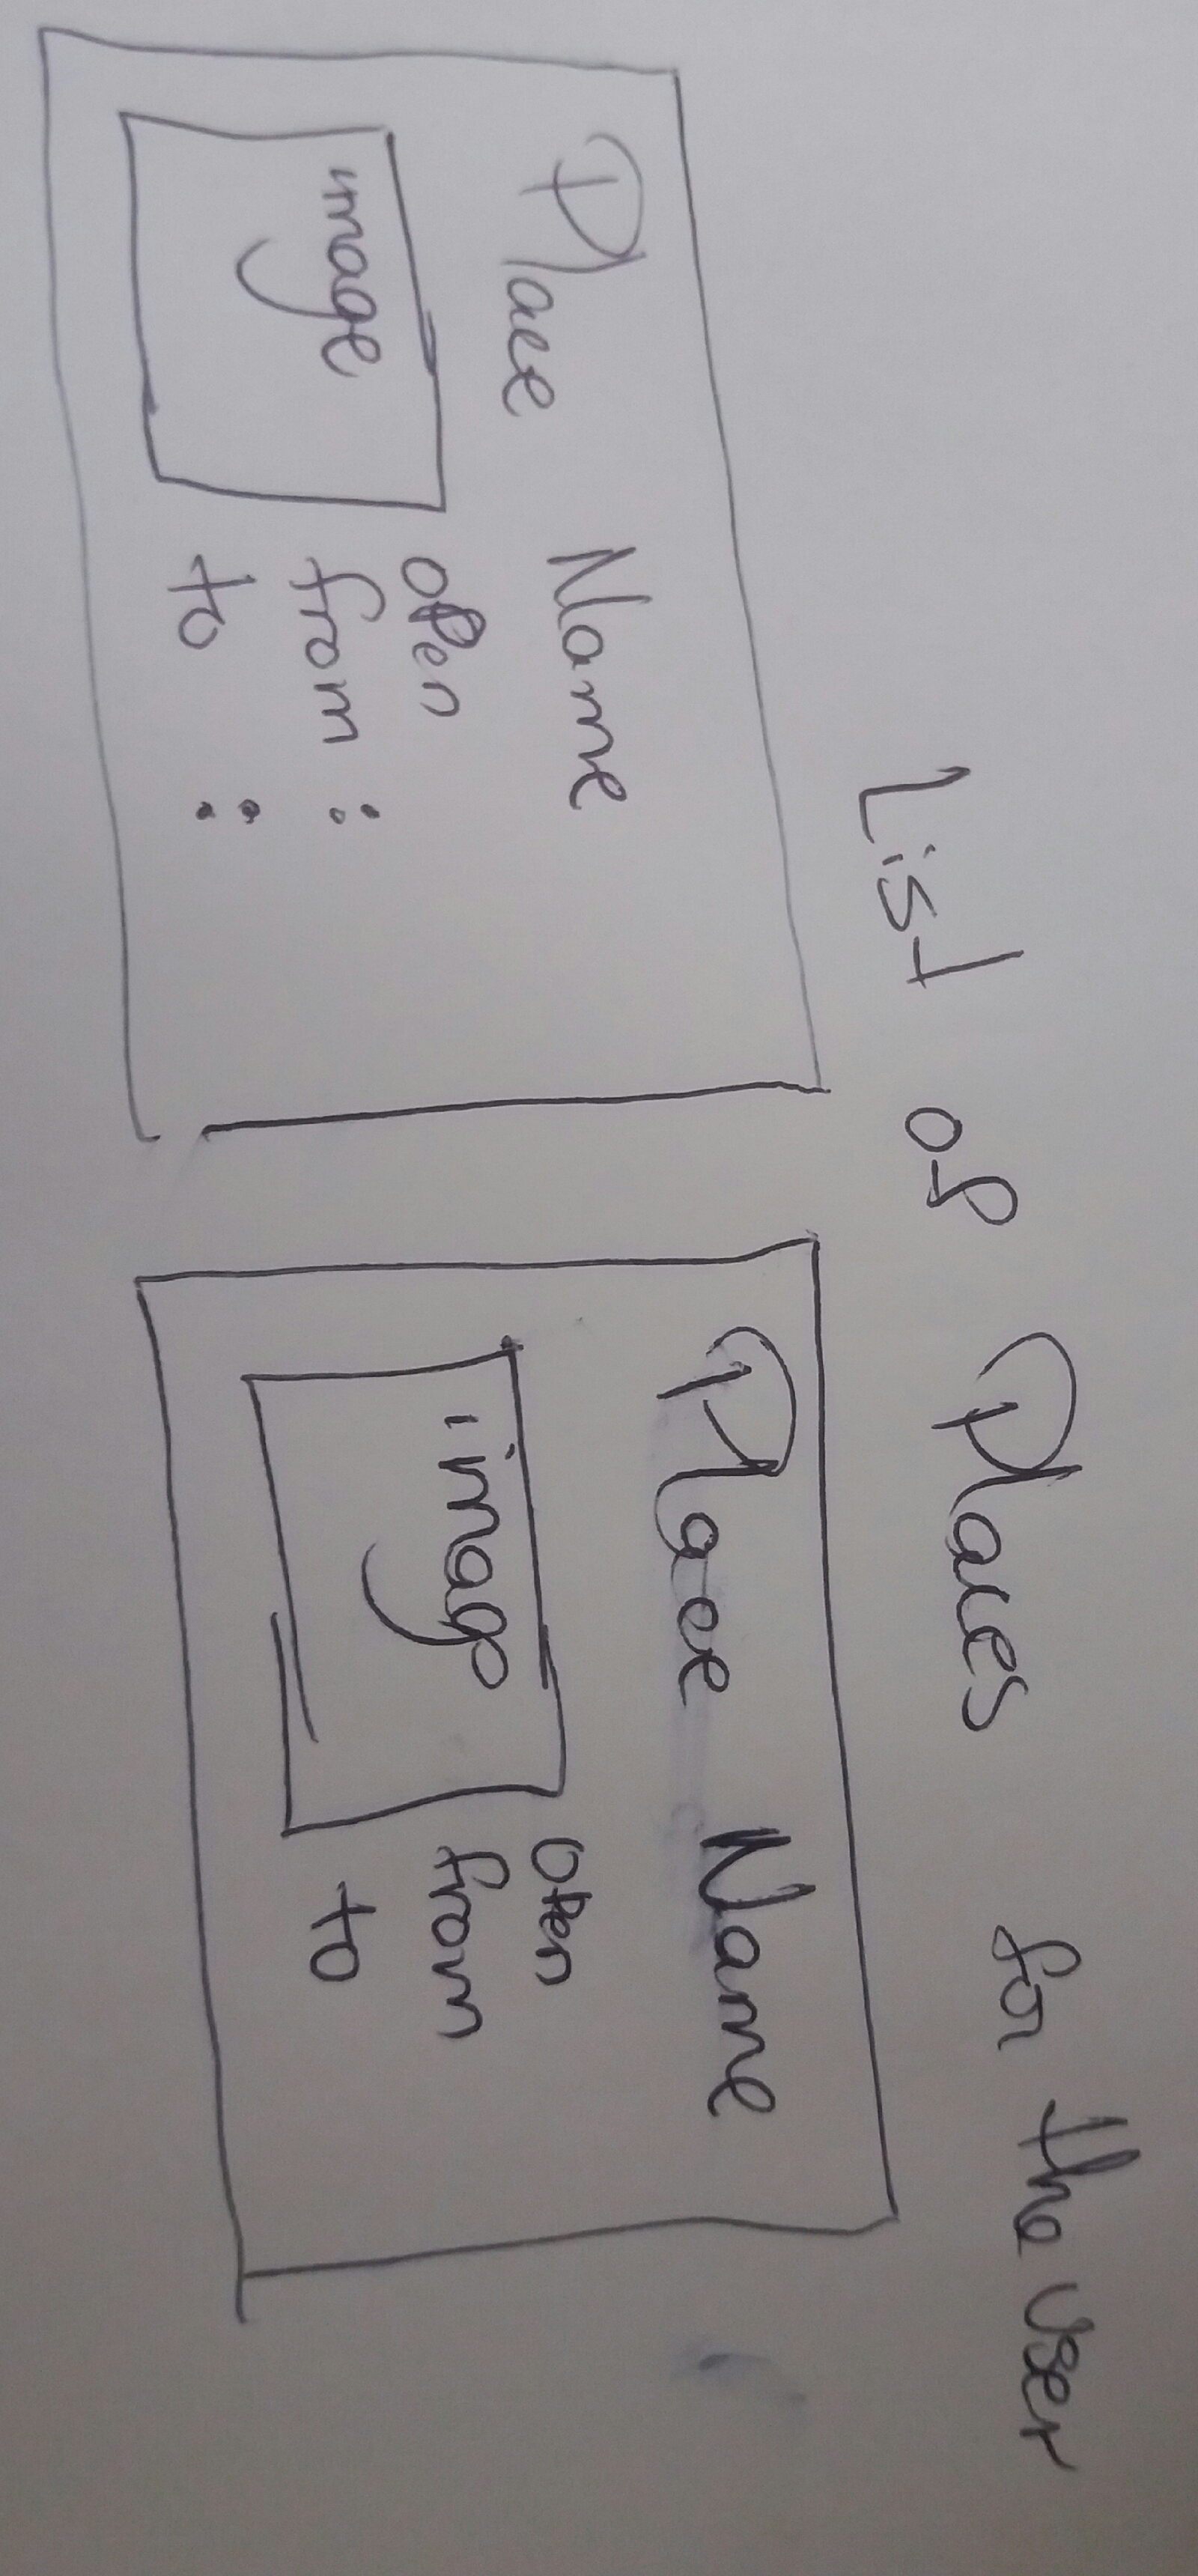 List of Places for the user
Place Name
image
open
from :
to :
Place Name
image
open
from
to